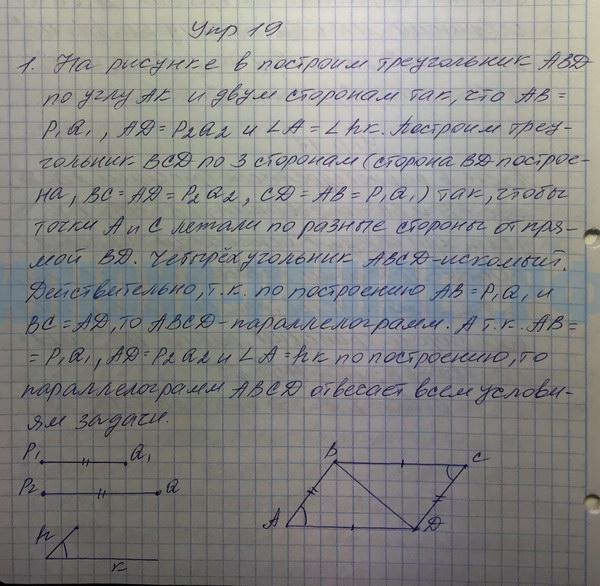 Упр 19
1. На рисунке в построим треугольник ABD
по углу АК и двум сторонам так, что AB =
P₁Q₁, AD = P₂Q₂ и ∠A = ∠hк. Построим треу-
гольник BCD по 3 сторонам (сторона BD построе-
на, BC = AD = P₂Q₂, CD = AB = P₁Q₁) так, чтобы
точки A и C лежали по разные стороны от пря-
мой BD. Четырёхугольник ABCD - искомый.
Действительно, т.к. по построению AB = P₁Q₁ и
BC = AD, то ABCD - параллелограмм. А т.к. AB =
= P₁Q₁, AD = P₂Q₂ и ∠A = hк по построению, то
параллелограмм ABCD отвесает всем услови-
ям задачи.
P₁ Q₁
P₂ Q
h к
B C
A D